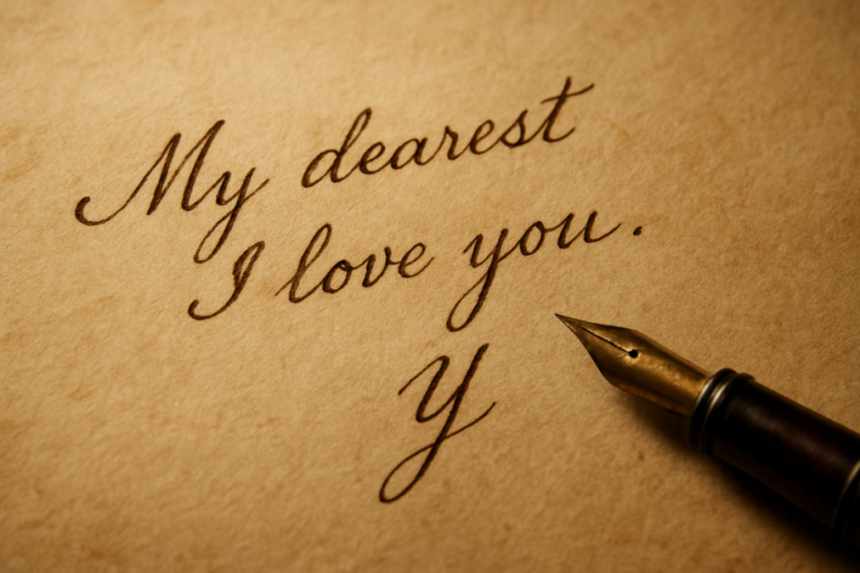 My dearest
I love you.
Y